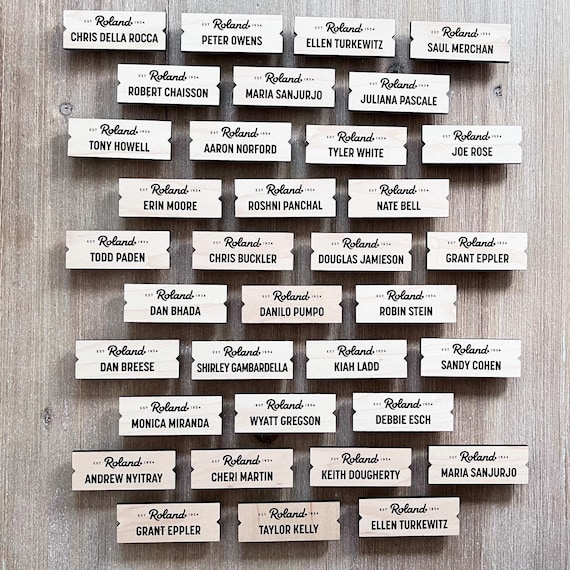 EST Roland 1934
CHRIS DELLA ROCCA
EST Roland 1934
PETER OWENS
EST Roland 1934
ELLEN TURKEWITZ
EST Roland 1934
SAUL MERCHAN
EST Roland 1934
ROBERT CHAISSON
EST Roland 1934
MARIA SANJURJO
EST Roland 1934
JULIANA PASCALE
EST Roland 1934
TONY HOWELL
EST Roland 1934
AARON NORFORD
EST Roland 1934
TYLER WHITE
EST Roland 1934
JOE ROSE
EST Roland 1934
ERIN MOORE
EST Roland 1934
ROSHNI PANCHAL
EST Roland 1934
NATE BELL
EST Roland 1934
TODD PADEN
EST Roland 1934
CHRIS BUCKLER
EST Roland 1934
DOUGLAS JAMIESON
EST Roland 1934
GRANT EPPLER
EST Roland 1934
DAN BHADA
EST Roland 1934
DANILO PUMPO
EST Roland 1934
ROBIN STEIN
EST Roland 1934
DAN BREESE
EST Roland 1934
SHIRLEY GAMBARDELLA
EST Roland 1934
KIAH LADD
EST Roland 1934
SANDY COHEN
EST Roland 1934
MONICA MIRANDA
EST Roland 1934
WYATT GREGSON
EST Roland 1934
DEBBIE ESCH
EST Roland 1934
ANDREW NYITRAY
EST Roland 1934
CHERI MARTIN
EST Roland 1934
KEITH DOUGHERTY
EST Roland 1934
MARIA SANJURJO
EST Roland 1934
GRANT EPPLER
EST Roland 1934
TAYLOR KELLY
EST Roland 1934
ELLEN TURKEWITZ